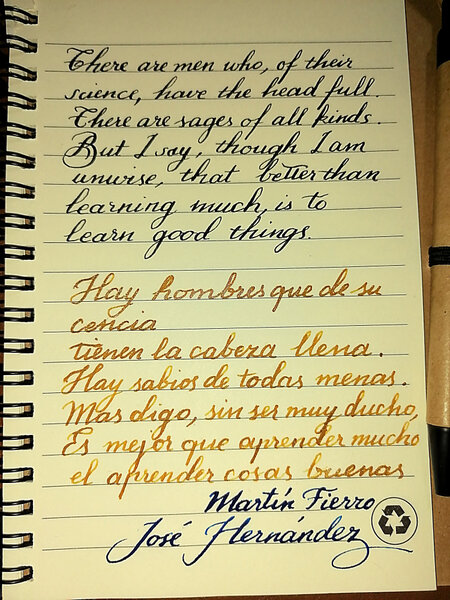 There are men who, of their
science, have the head full.
There are sages of all kinds.
But I say, though I am
unwise, that better than
learning much, is to
learn good things.
Hay hombres que de su
cencia
tienen la cabeza llena.
Hay sabios de todas menas.
Mas digo, sin ser muy ducho,
Es mejor que aprender mucho
el aprender cosas buenas
Martín Fierro
José Hernández